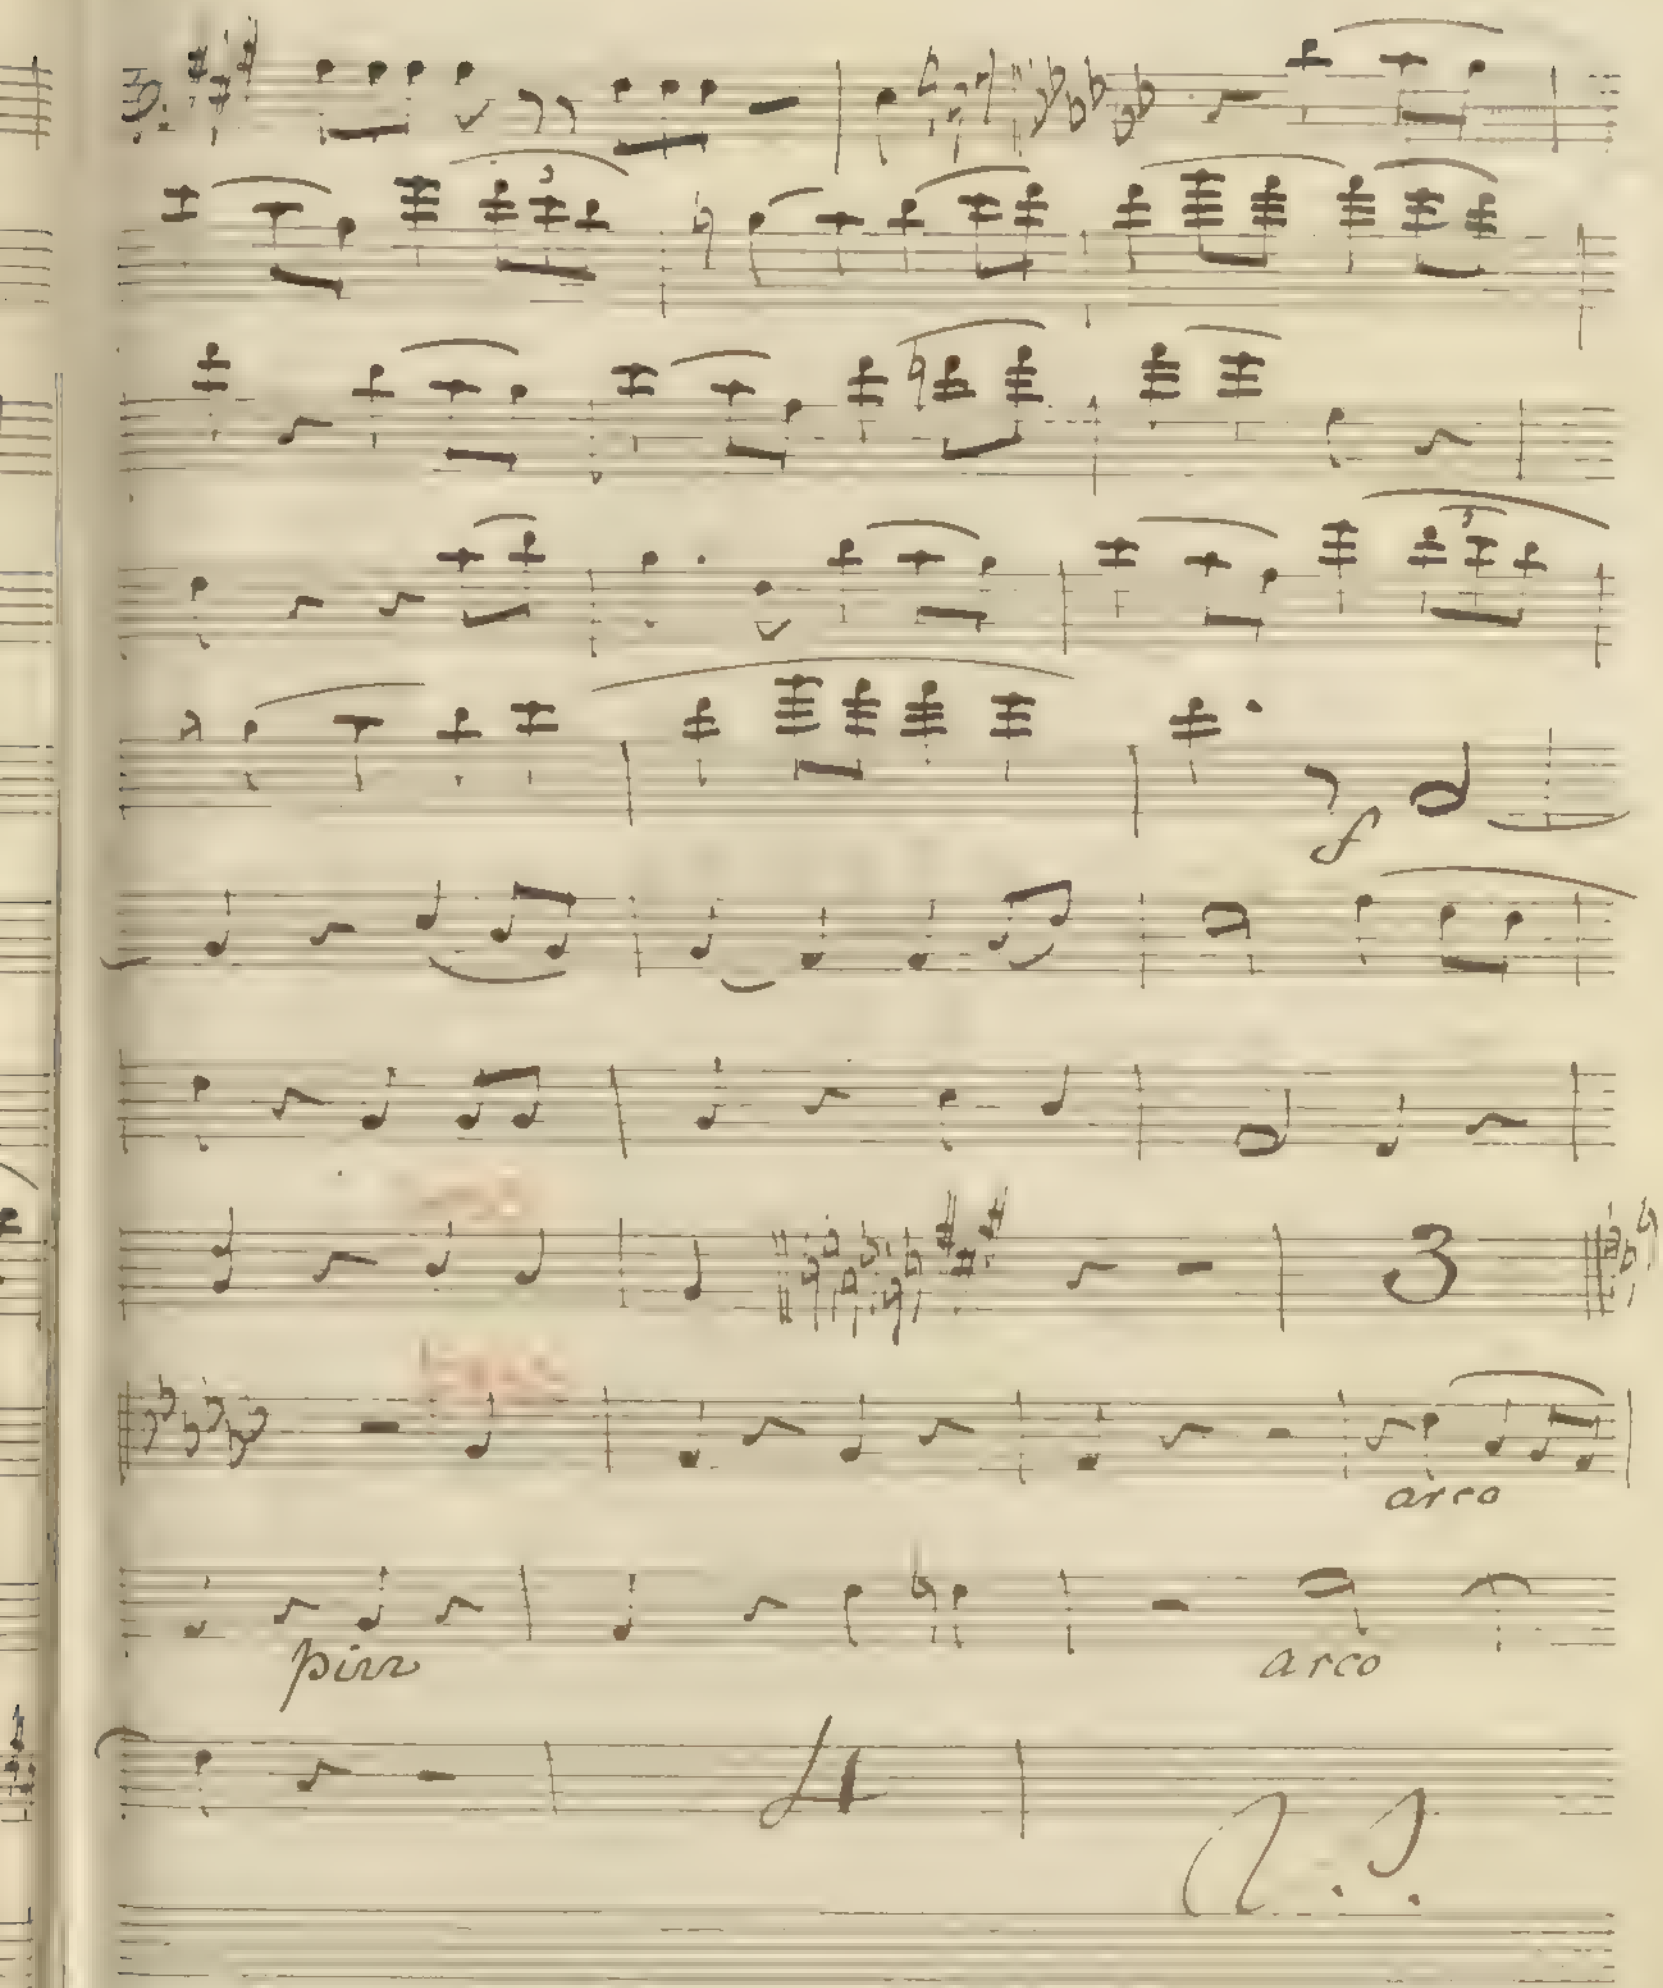 3
3
f
3
arco
pizz arco
4
V. S.